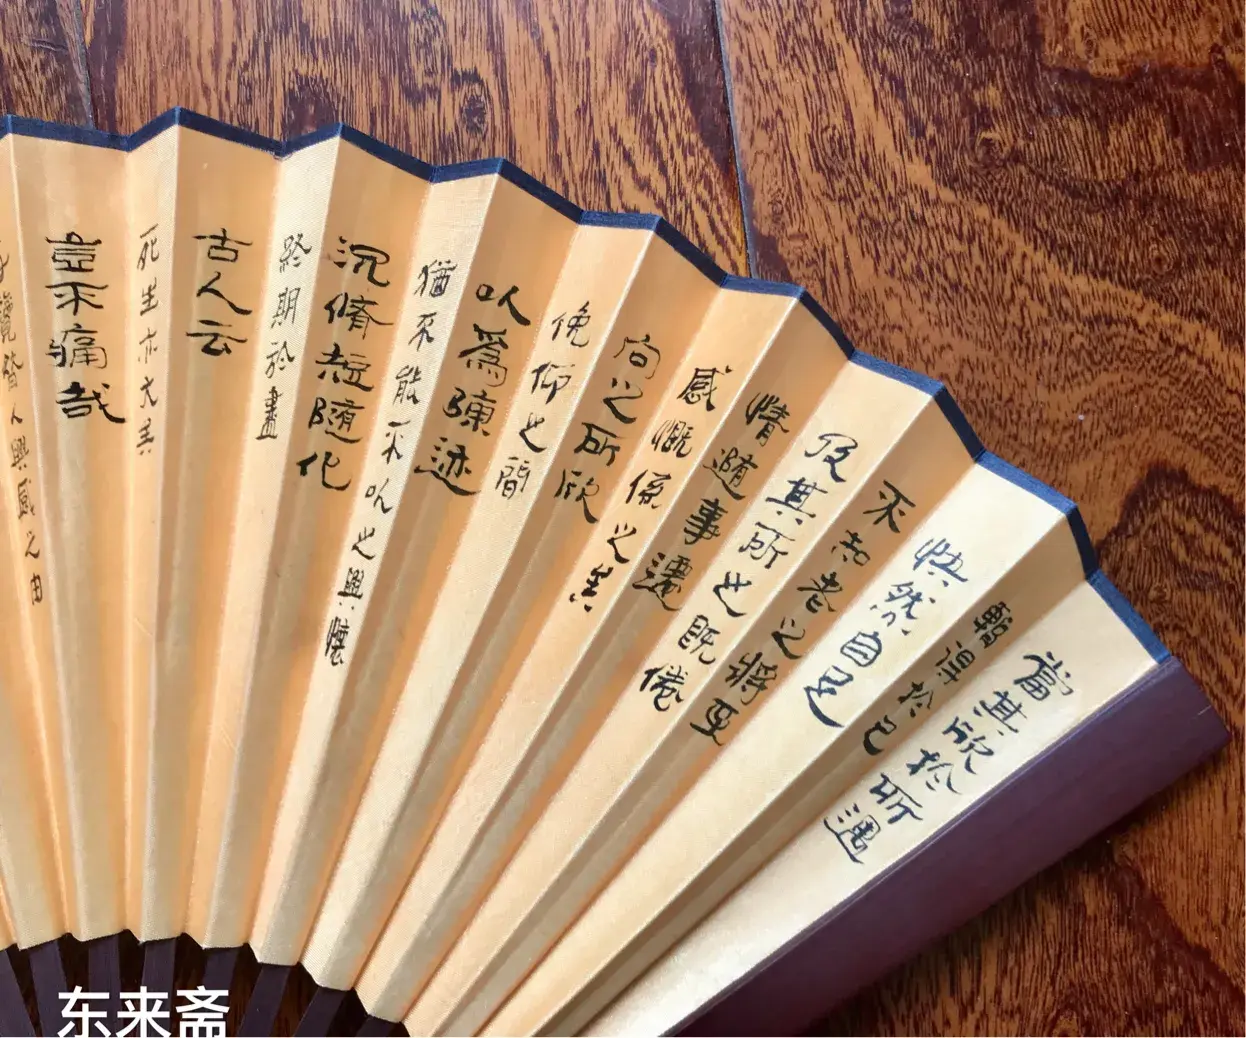 當其欣於所遇
暫得於己
快然自足
不知老之將至
及其所之既倦
情隨事遷
感慨係之矣
向之所欣
俛仰之間
以爲陳迹
猶不能不以之興懷
況脩短隨化
終期於盡
古人云
死生亦大矣
豈不痛哉
覽昔人興感之由
东来斋